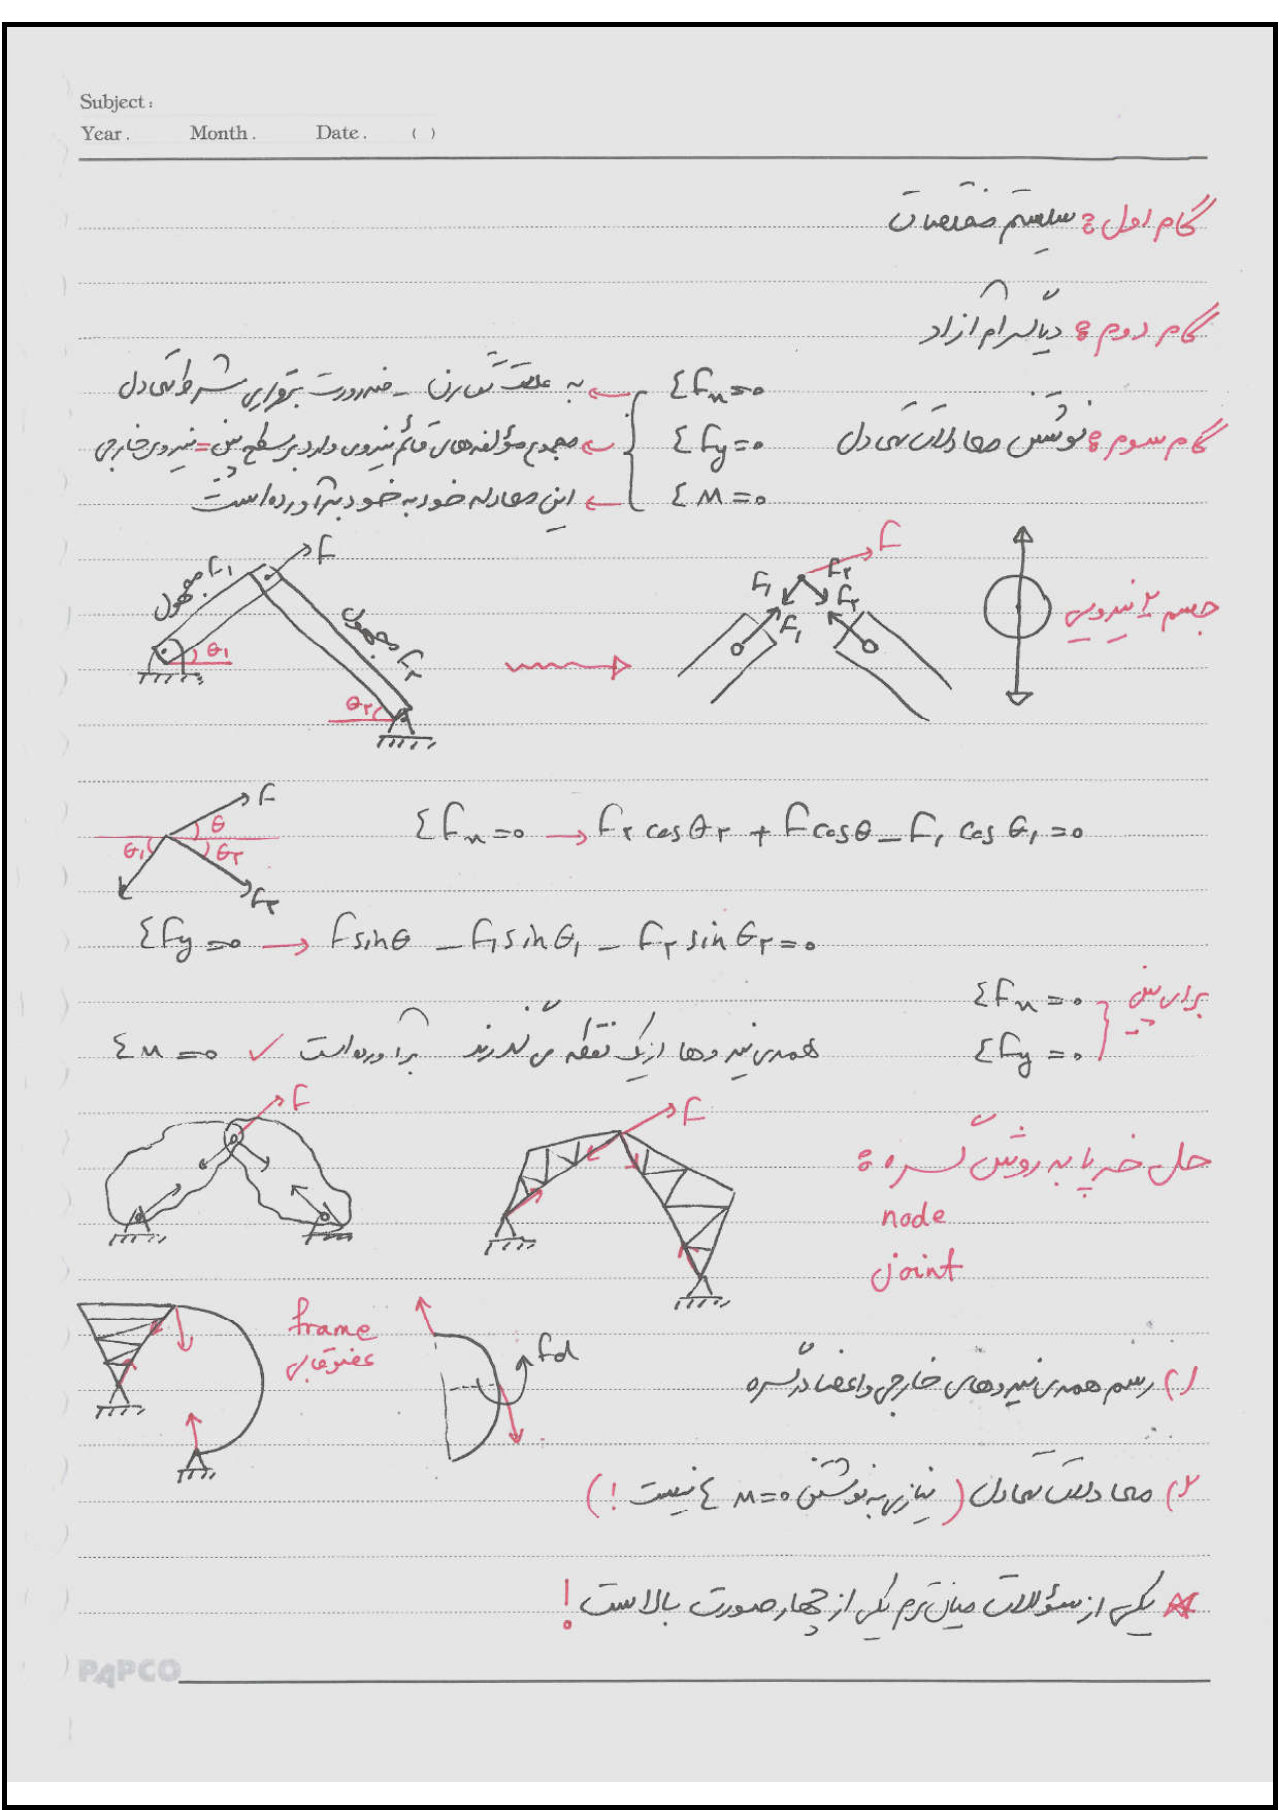 Subject:
Year. Month. Date. ( )
گام اول: سیستم مختصات
گام دوم: دیاگرام آزاد
گام سوم: نوشتن معادلات تعادل
ΣFx=0 ← به علت تقارن - ضرورت برقراری شرط تعادل
ΣFy=0 ← مجموع مؤلفه‌های قائم نیروی وارد بر سطح پین = نیروی خارجی
ΣM=0 ← این معادله خود به خود برآورده است
F
F₁ مجهول
مجهول F₂
θ₁
θ₂
F
F₁ F₂
F₁ F₂
جسم ۲ نیرویی
F
θ
θ₁ θ₂
F₂
ΣFx=0 → F₂ cosθ₂ + F cosθ - F₁ cosθ₁ = 0
ΣFy=0 → F sinθ - F₁ sinθ₁ - F₂ sinθ₂ = 0
برای پین
ΣFx=0
ΣFy=0
همه‌ی نیروها از یک نقطه می‌گذرند برآورده است ✓ ΣM=0
F
F
حل خرپا به روش گره:
node
joint
frame
عضو قابی
Fd
۱) رسم همه‌ی نیروهای خارجی و اعضا در گره
۲) معادلات تعادل (نیازی به نوشتن ΣM=0 نیست!)
* یکی از سؤالات میان‌ترم یکی از چهار صورت بالاست!
PAPCO